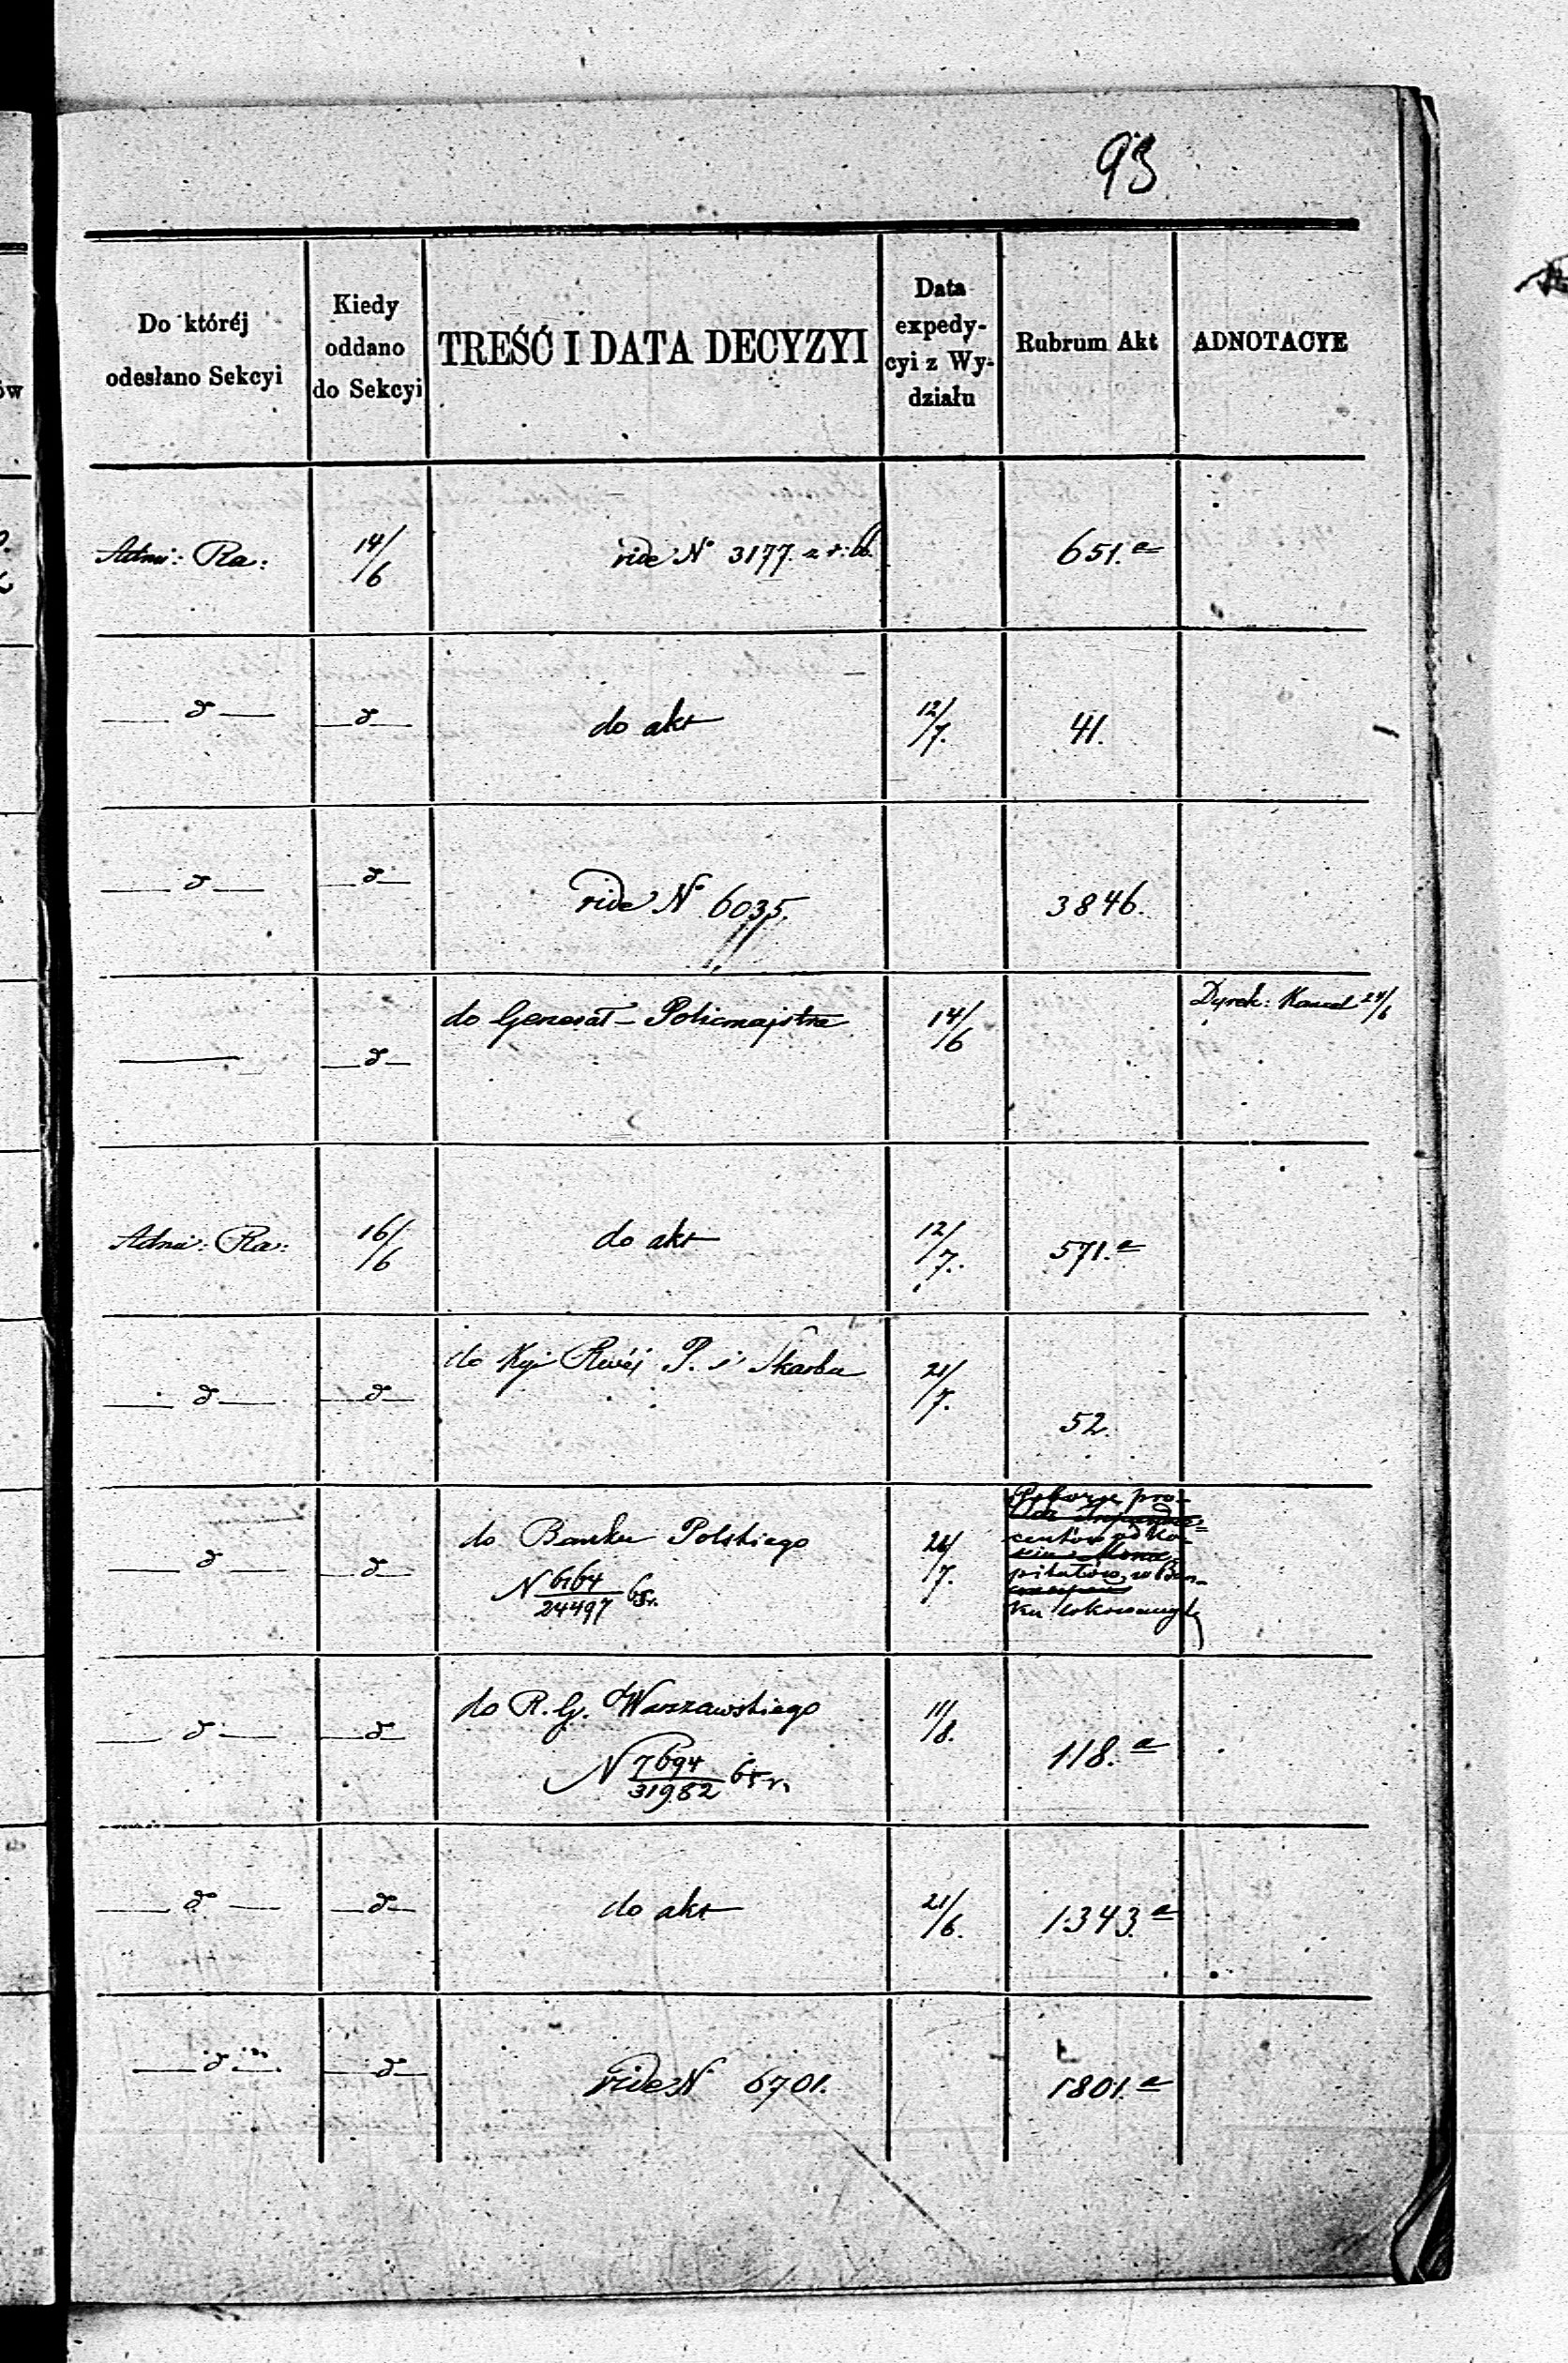 93
Do któréj
odesłano Sekcyi
Kiedy
oddano
do Sekcyi
TREŚĆ I DATA DECYZYI
Data
expedy-
cyi z Wy-
działu
Rubrum Akt
ADNOTACYE
Admi: Ra: 14/6 vide No 3177. a r: b. 651.a
— d — — d — do akt 12/7. 41.
— d — — d — vide No 6035. 3846.
— — d — do Generał-Policmajstra 14/6 Dyrek: Kancel 24/6
Admi: Ra: 16/6 do akt 12/7. 571.a
— d — — d — do Kyi Rwéj P. i Skarbu 21/7. 52.
— d — — d — do Banku Polskiego 26/7.
N 6164/24497 65r.
pro-
centów od Ka-
pitałów, w Ban-
ku lokowanych
— d — — d — do R. G. Warszawskiego 11/8. 118.a
N 7694/31982 65 r.
— d — — d — do akt 21/6. 1343.a
— d — — d — vide N 6701. 1801.a